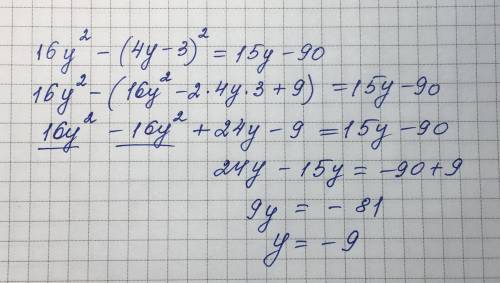 16y² - (4y - 3)² = 15y - 90
16y² - (16y² - 2·4y·3 + 9) = 15y - 90
16y² - 16y² + 24y - 9 = 15y - 90
24y - 15y = -90 + 9
9y = - 81
y = - 9